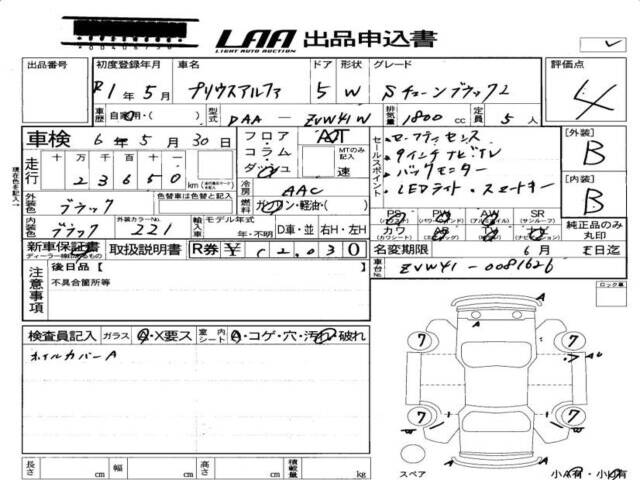 LAA 出品申込書
LIGHT AUTO AUCTION
出品番号 初度登録年月 車名 ドア 形状 グレード 評価点
R1年5月 プリウスアルファ 5 W Sチューンブラック2 4
車歴 自家用・( ) 型式 DAA-ZVW41W 排気量 1800cc 定員 5人
車検 6年5月30日 フロア AOT セールスポイント ・セーフティセンス [外装] B
走行 十万 万 千 百 十 コラム MTのみ記入 ・9インチナビTV
2 3 6 5 0 km ダッシュ 速 ・バックモニター
冷房 AAC ・LEDライト・スマートキー [内装] B
外装色 ブラック 色替車は色替と記入 燃料 ガソリン・軽油・( )
PS PW AW SR (サンルーフ)
内装色 ブラック 外装カラーNo. 221 輸入車 モデル年式 年・不明 D車・並 右H・左H
カワ (カワシート) AB TV ナビ 純正品のみ丸印
新車保証書 取扱説明書 R券 ¥ 12,030 名変期限 6月 E日迄
ディーラー検印があるもの
車台No. ZVW41-0081626
注意事項 後日品【 】
不具合箇所等
ロック車
検査員記入 ガラス A・X要ス 室内シート A・コゲ・穴・汚れ・破れ
ホイルカバーA
A
7 7
A
7 7
スペア 小A有・小U有
長さ cm 幅 cm 高さ cm 積載量 kg